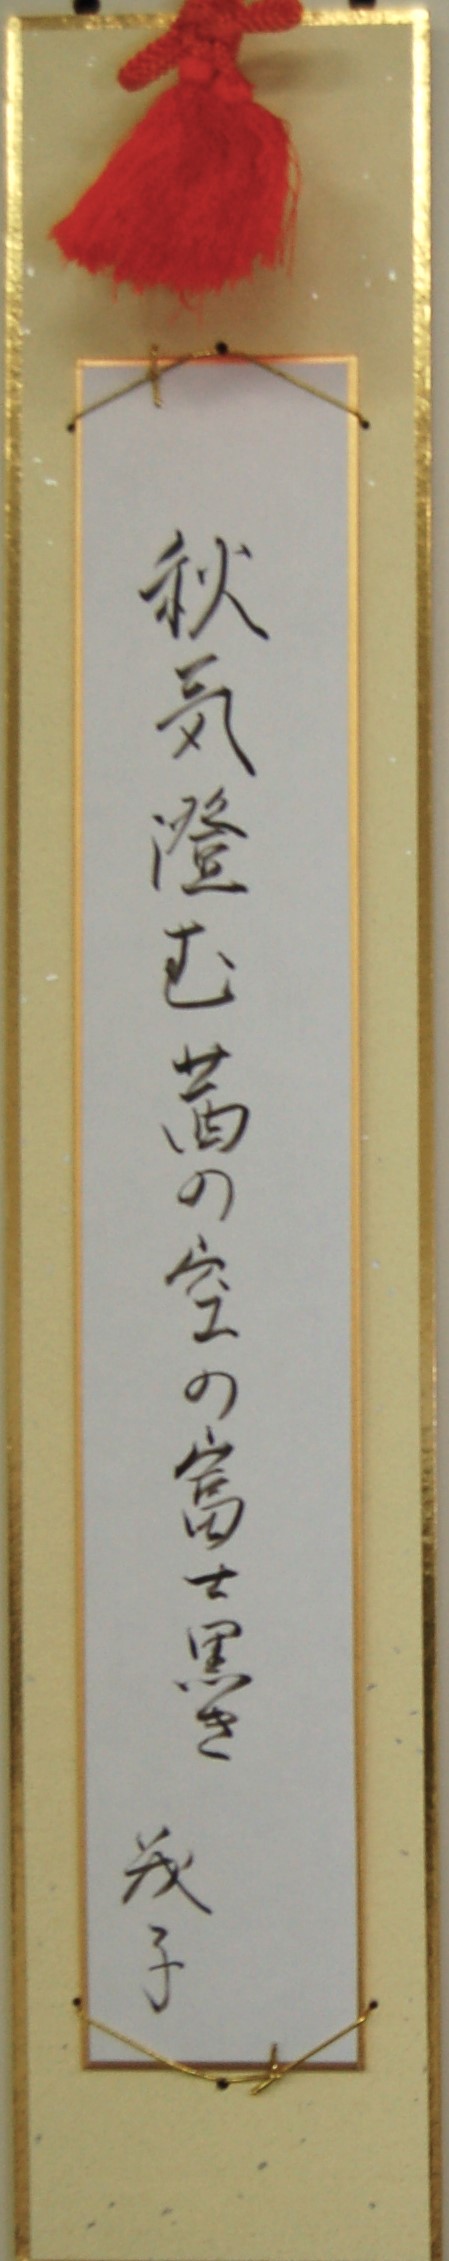 秋気澄む茜の空の富士黒き
茂子